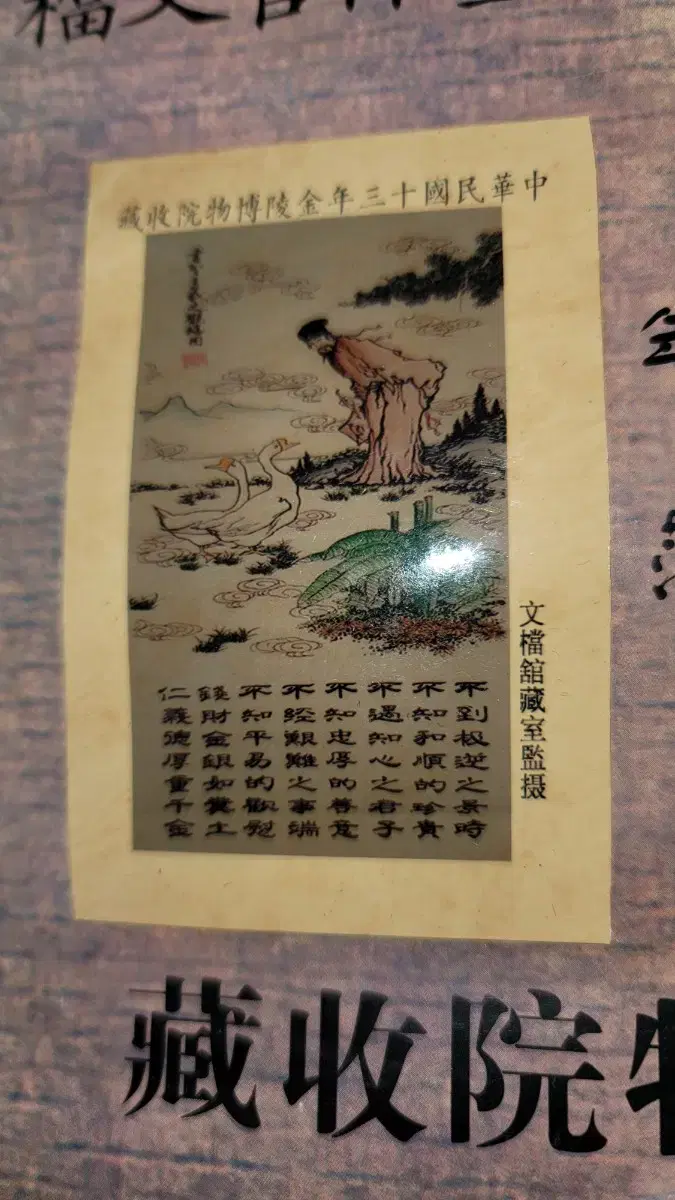 中華民國十三年金陵博物院收藏
文檔舘藏室監摄
不到极逆之景時
不知和順的珍貴
不遇知心之君子
不知忠厚的善意
不經艱難之事端
不知平易的歡慰
錢財金銀如糞土
仁義德厚重千金
院收藏